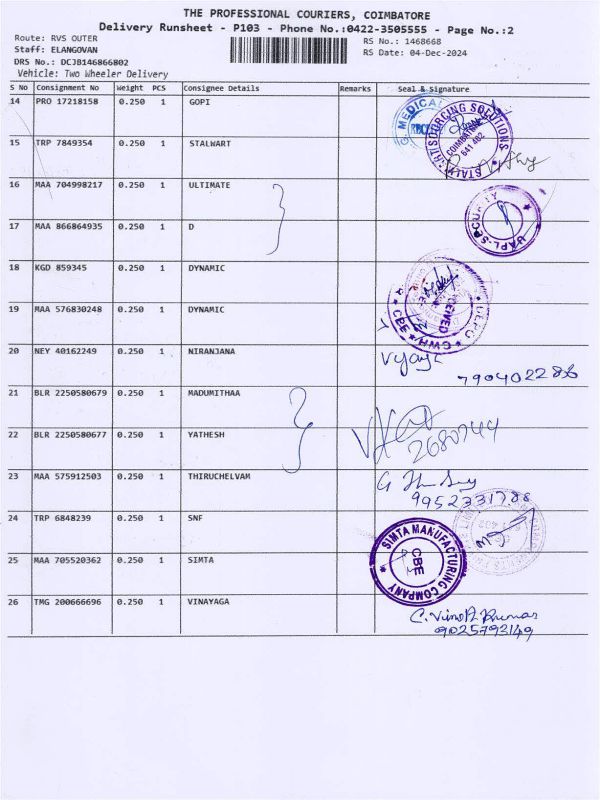 THE PROFESSIONAL COURIERS, COIMBATORE
Delivery Runsheet - P103 - Phone No.:0422-3505555 - Page No.:2
Route: RVS OUTER
RS No.: 1468668
Staff: ELANGOVAN
RS Date: 04-Dec-2024
DRS No.: DCJB146866802
Vehicle: Two Wheeler Delivery
S No Consignment No Weight PCS Consignee Details Remarks Seal & Signature
14 PRO 17218158 0.250 1 GOPI
G. MEDICAL
SOURCING SOLUTIONS
COIMBATORE
641 402
15 TRP 7849354 0.250 1 STALWART
16 MAA 704998217 0.250 1 ULTIMATE
UAPL-SECURITY
17 MAA 866864935 0.250 1 D
18 KGD 859345 0.250 1 DYNAMIC
RECEIVED
CWH CBE
19 MAA 576830248 0.250 1 DYNAMIC
20 NEY 40162249 0.250 1 NIRANJANA
790402286
21 BLR 2250580679 0.250 1 MADUMITHAA
22 BLR 2250580677 0.250 1 YATHESH
2680744
23 MAA 575912503 0.250 1 THIRUCHELVAM
9952331788
24 TRP 6848239 0.250 1 SNF
25 MAA 705520362 0.250 1 SIMTA
SIMTA MANUFACTURING COMPANY
CBE
26 TMG 200666696 0.250 1 VINAYAGA
C. Vinoth Kumar
9025793149